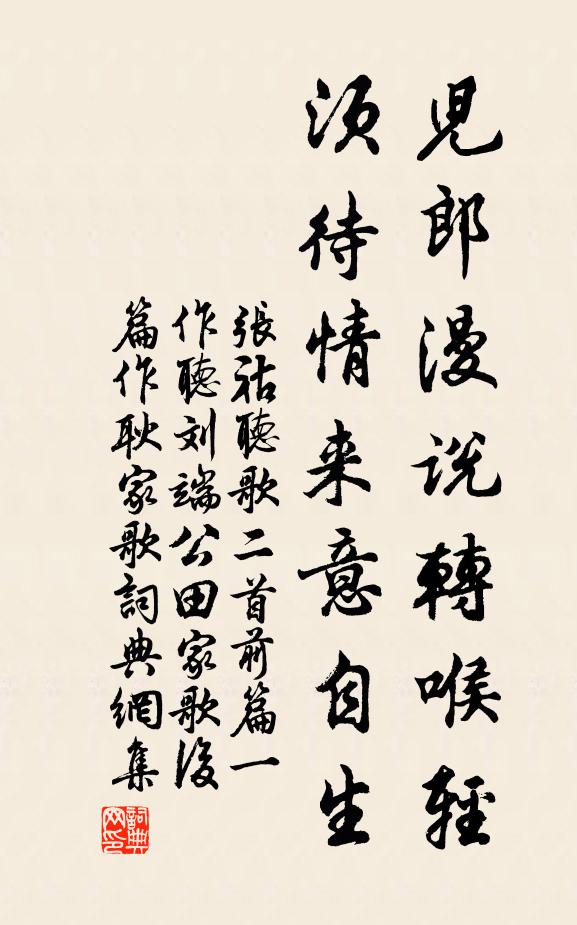 児郎漫说轉喉輕
须待情来意自生
張祜聽歌二首前篇一
作聽刘端公田家歌後
篇作耿家歌詞典網集
詞典网印